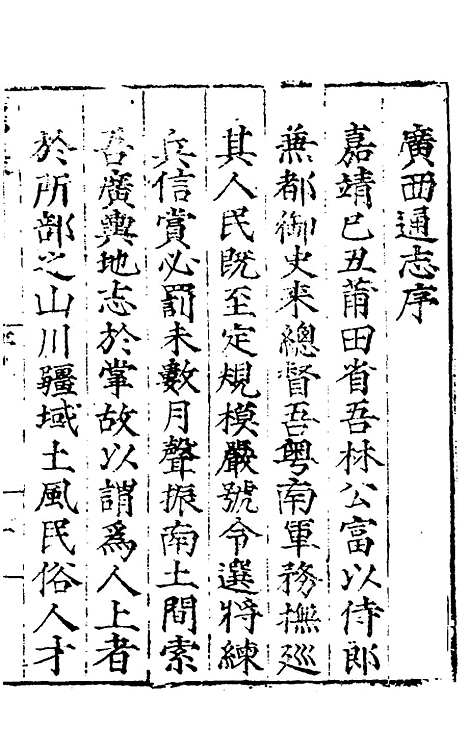 廣西通志序
嘉靖己丑莆田省吾林公富以侍郎
兼都御史来總督吾粤南軍務撫巡
其人民既至定規模嚴號令選將練
兵信賞必罰未數月聲振南土間索
吾廣輿地志於掌故以謂爲人上者
於所部之山川疆域土風民俗人才